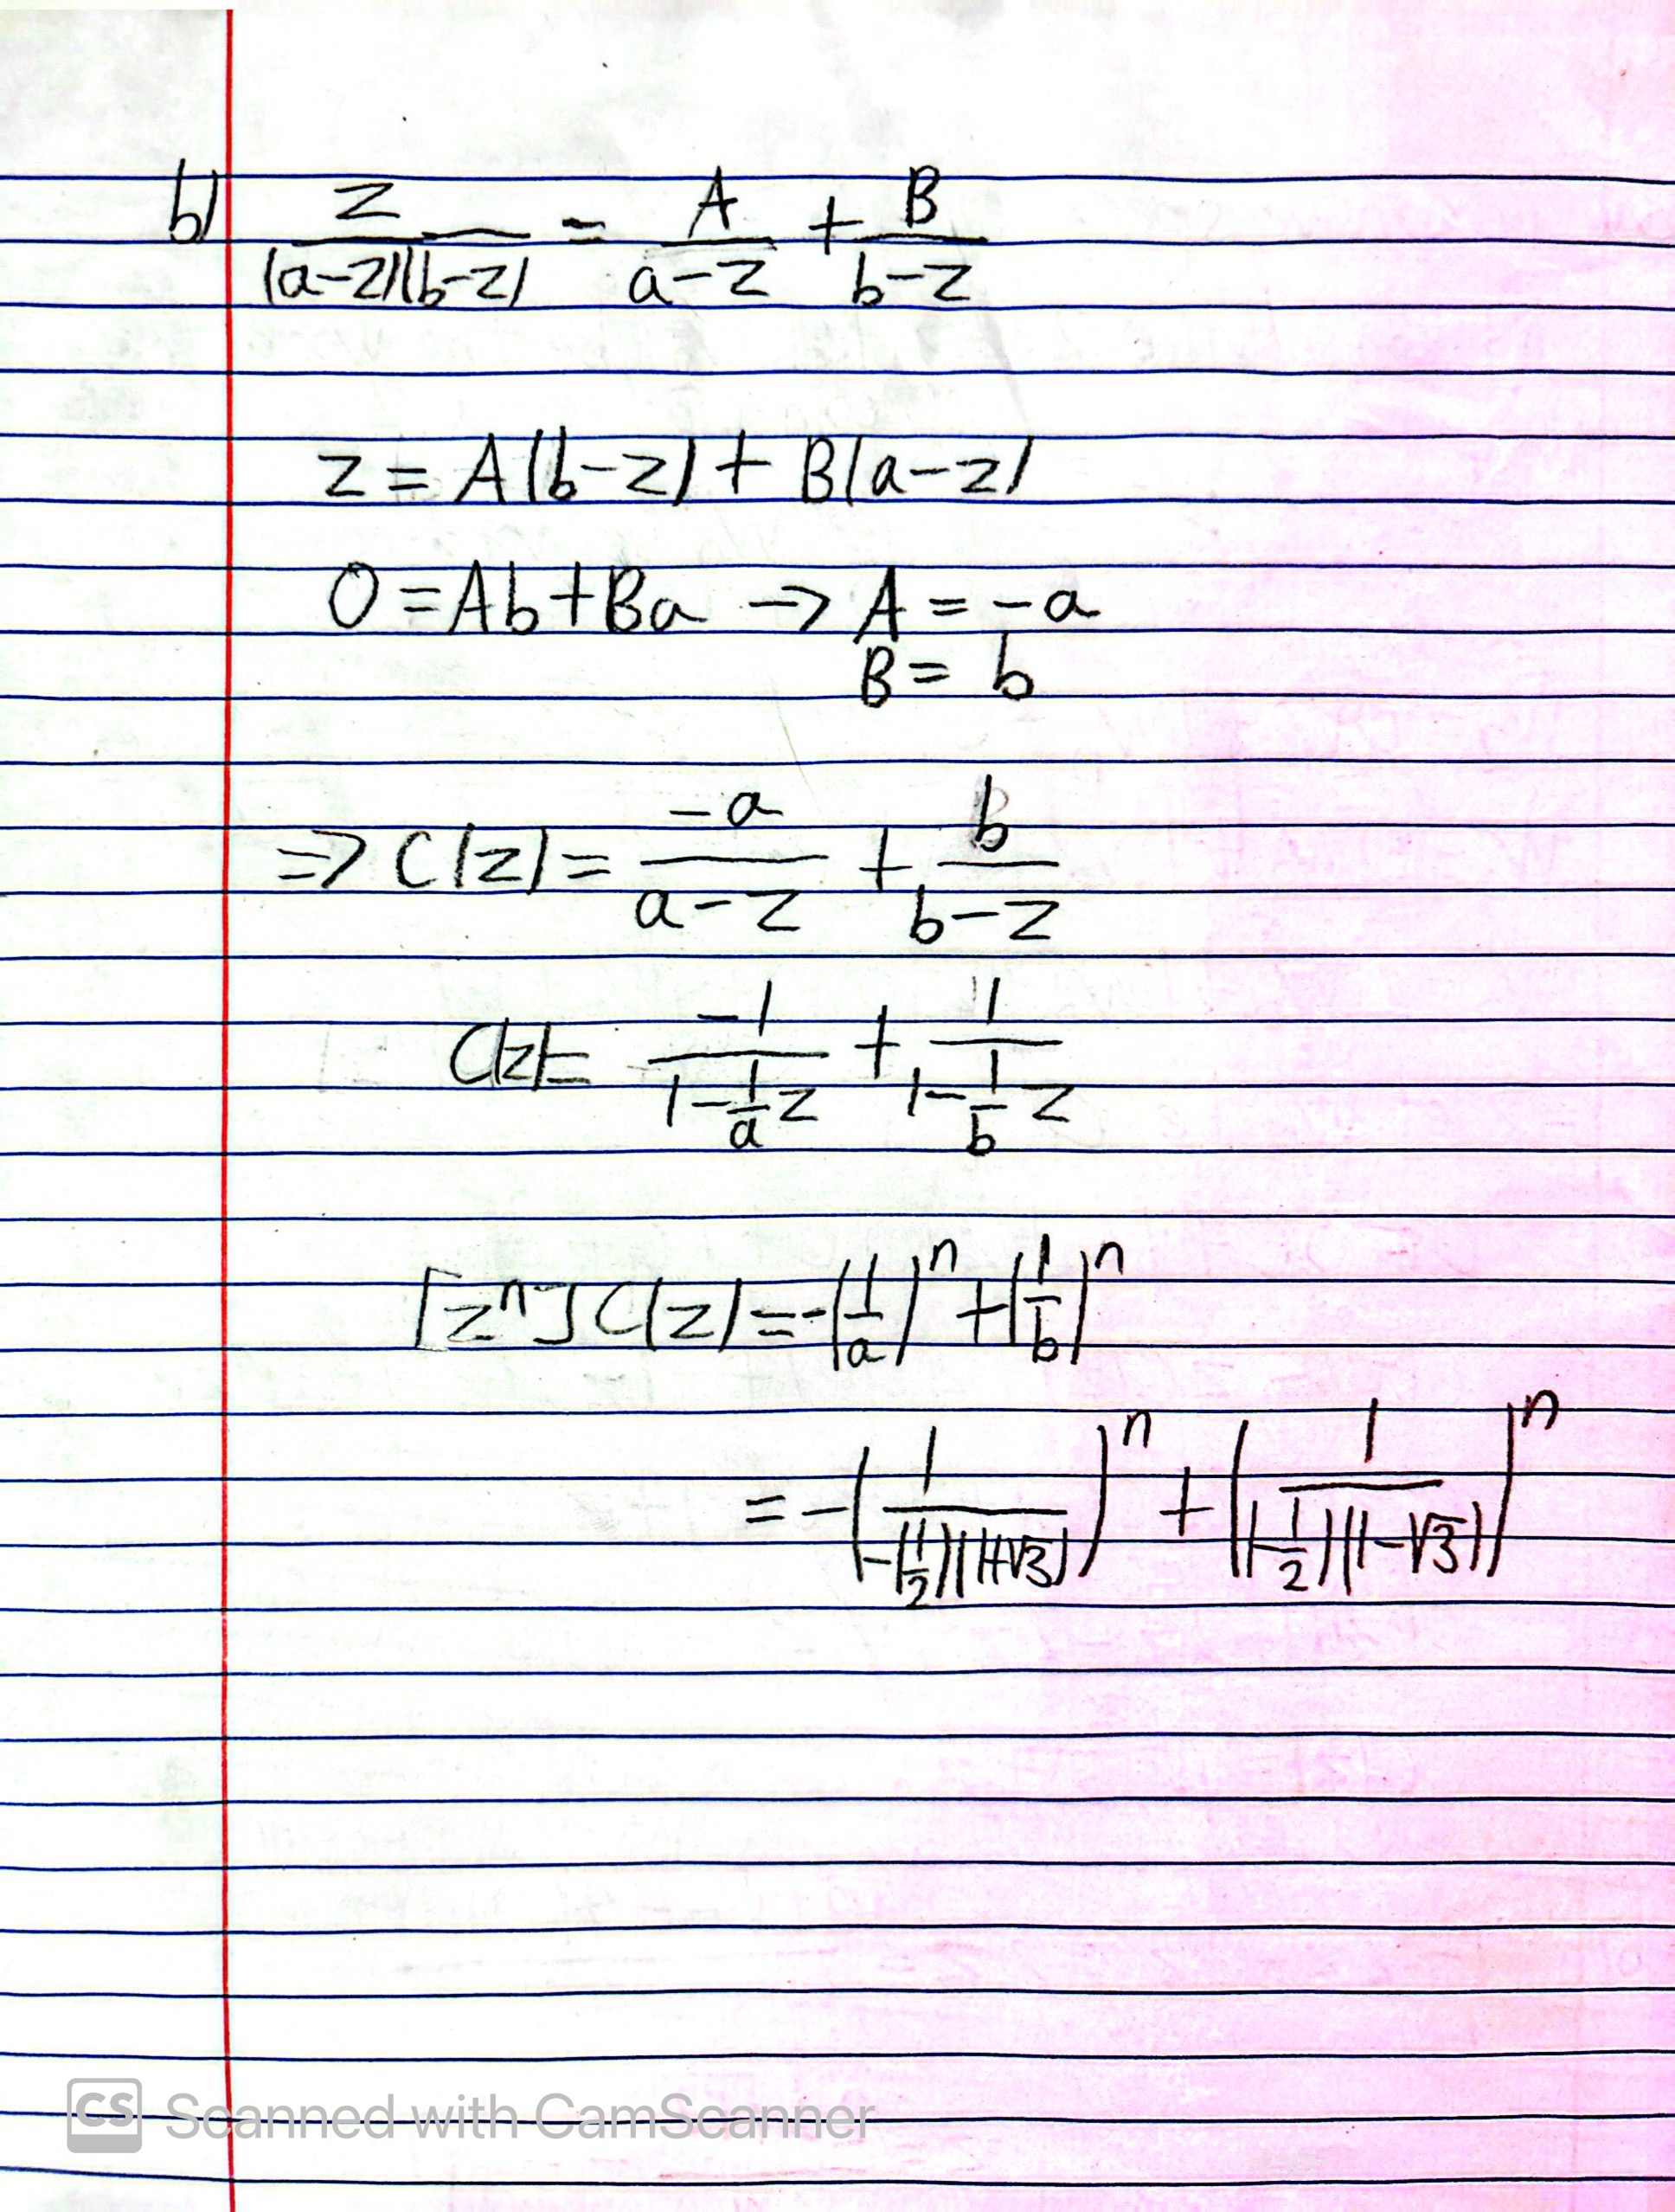 b) z/((a-z)(b-z)) = A/(a-z) + B/(b-z)
z = A(b-z) + B(a-z)
0 = Ab + Ba -> A = -a
B = b
=> C(z) = -a/(a-z) + b/(b-z)
C(z) = -1/(1-(1/a)z) + 1/(1-(1/b)z)
[z^n] C(z) = -(1/a)^n + (1/b)^n
= -(1/(-(1/2)(1+√3)))^n + (1/((-1/2)(1-√3)))^n
CS Scanned with CamScanner